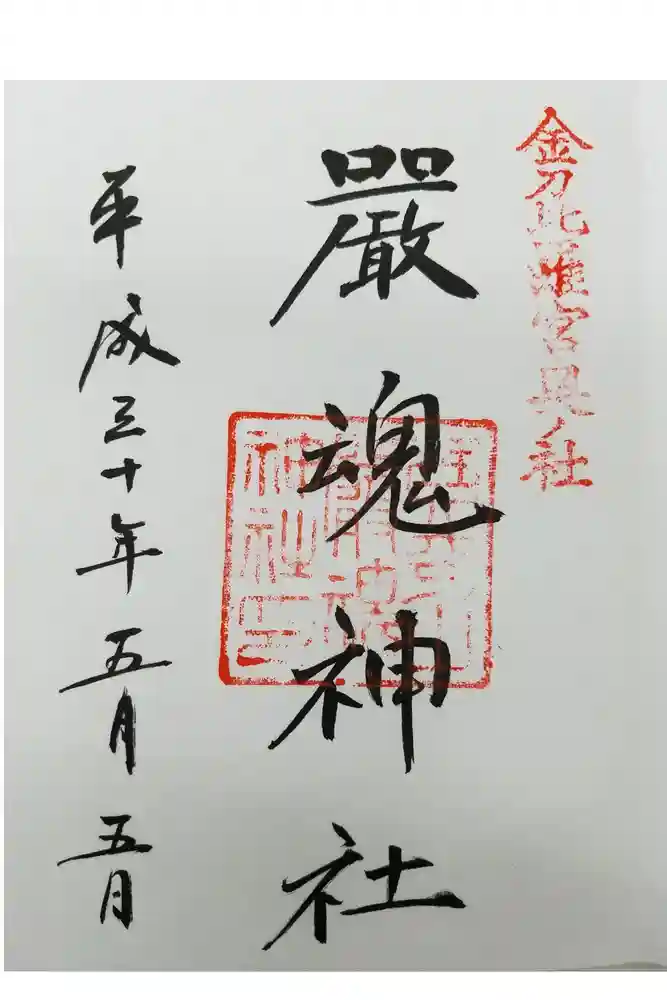 金刀比羅宮奥ノ社
嚴魂神社
平成三十年五月五月